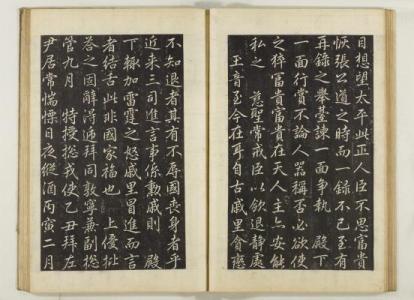 目想望太平此正人臣不思富貴
恢張公道之時而一錄不已至有
再錄之舉臺諫一面爭執　殿下
一面行賞不論人器稱否必欲使
之猝富貴富貴在天人主亦安能
私之　慈聖常戒臣以欽退靜處
王音至今在耳自古戚里會
不知退者其有不辱國喪身者乎
近來三司進言事係勳戚則　殿
下輒加雷霆之怒戚里冒進而言
者結舌此非國家福也　上優批
答之固辭浮迊拜同敦寧兼副揔
管九月　特授揔戎使乙丑拜左
尹居常惴慄日夜縱酒丙寅二月